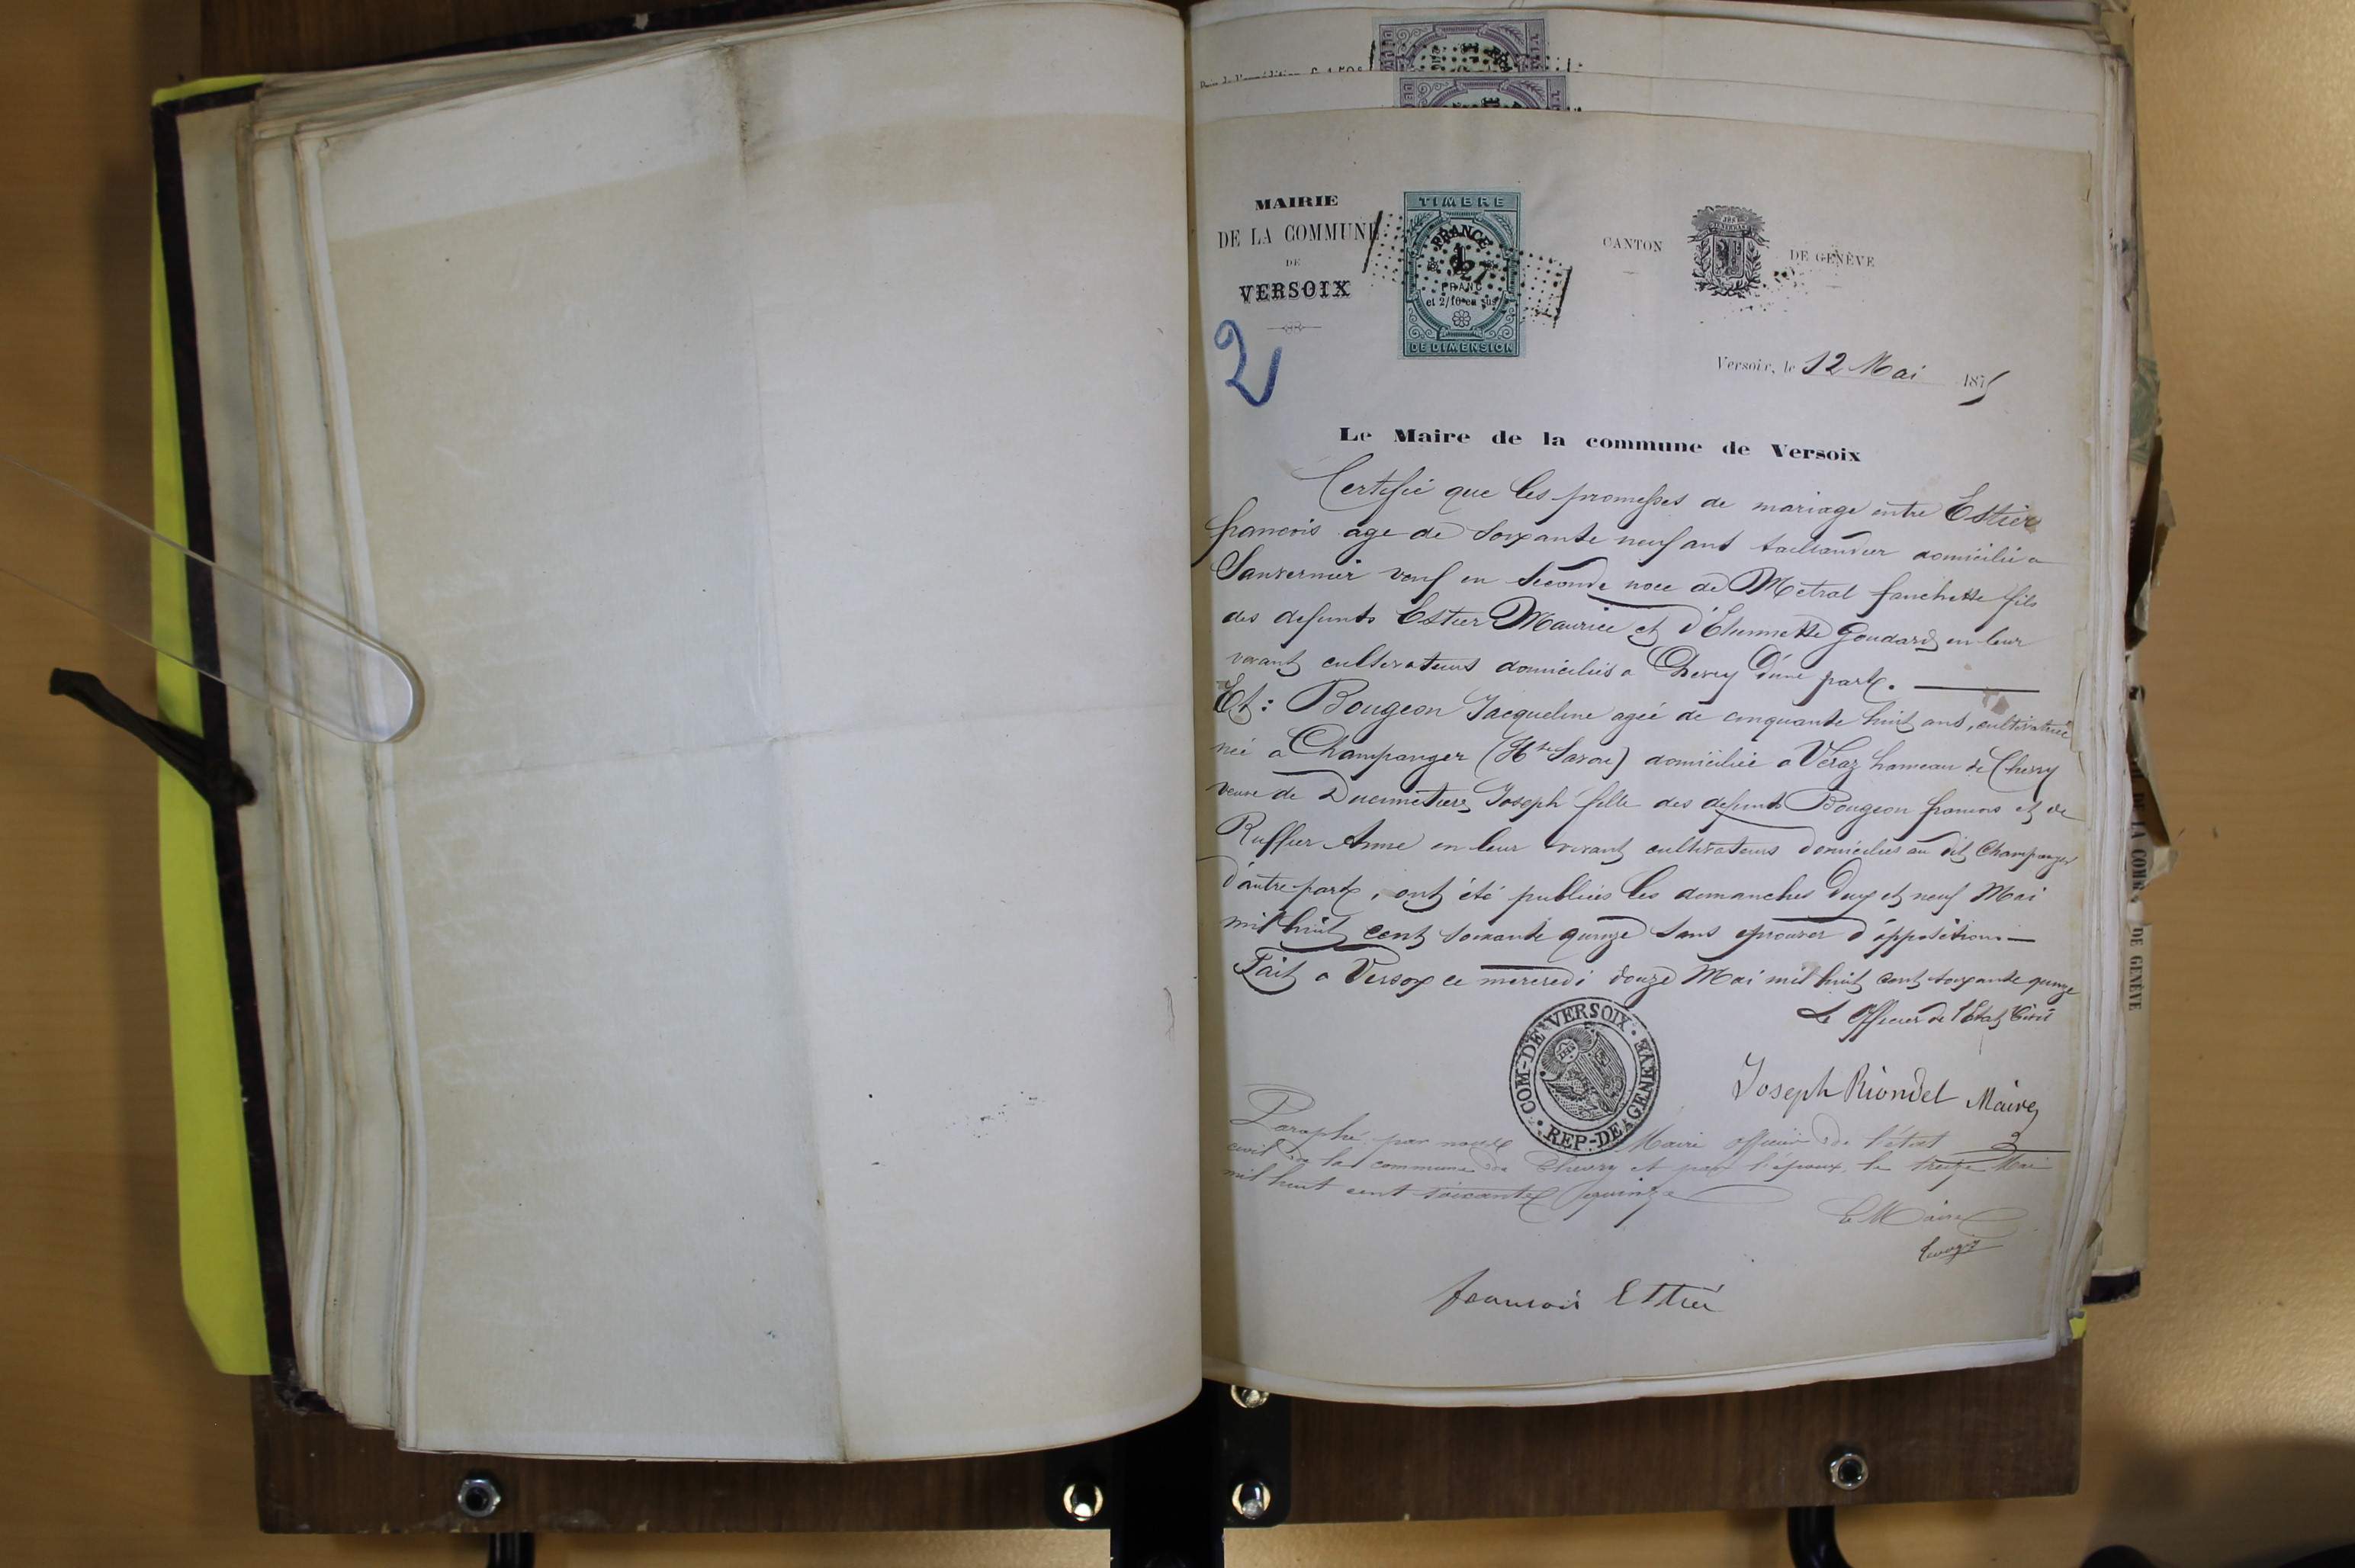 MAIRIE
DE LA COMMUNE
DE
VERSOIX
TIMBRE
FRANCE
1
FRANC
et 2/10 en sus
DE DIMENSION
CANTON
DE GENÈVE
2
Versoix, le 12 Mai 1875
Le Maire de la commune de Versoix
Certifié que les promesses de mariage entre Estier
francois age de soixante neuf ans taillandier domicilié a
Sauvernier veuf en seconde noce de Metral fanchette fils
des defunts Estier Maurice et d'Etiennette Goudard en leur
vivant cultivateurs domiciliés a Chevry d'une part.
Et : Bougeon Jacqueline agée de cinquante huit ans, cultivatrice
née a Champanger (Hte Savoie) domiciliée a Véraz hameau de Chevry
veuve de Ducimetière Joseph fille des defunts Bougeon francois et de
Ruffier Anne en leur vivant cultivateurs domiciliés au dit Champanger
d'autre part, ont été publiées les dimanches deux et neuf Mai
mil huit cent soixante quinze sans eprouver d'opposition
Fait a Versoix ce mercredi douze Mai mil huit cent soixante quinze
Le Officier de l'Etat Civil
COM-DE VERSOIX
REP-DE GENEVE
Joseph Riondel Maire
Paraphé par nous Maire officier de l'état
civil de la commune de Chevry et par l'époux, le treize Mai
mil huit cent soixante quinze
Le Maire
francois Estier
DE LA COMM
DE GENÈVE